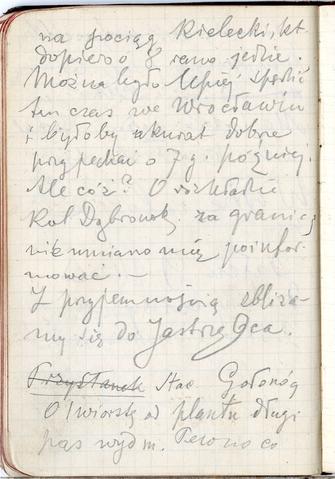 na pociąg Kielecki, kt.
dopiero o 8 rano jedzie.
Można było lepiej spędzić
ten czas we Wrocławiu
i byłoby akurat dobrze
przyjechać o 7 g. później.
Ale cóż? O rozkładzie
Kol Dąbrowsk. za granicą
nik umiano mię poinfor-
mować. —
Z przyjemnością zbliża-
my się do Jastrzębca.
Przystanek Stac. Gołonóg
O 1 wiorstę od plantu długi
pas wydm. Pewno co